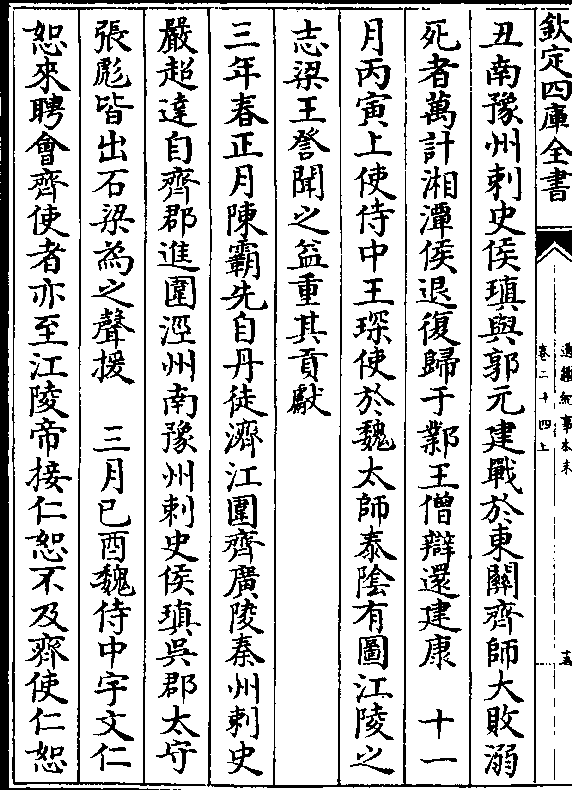 欽定四庫全書
通鑑紀事本末
卷二十四上
丑南豫州刺史侯瑱與郭元建戰於東關齊師大敗溺
死者萬計湘潭侯退復歸于鄴王僧辯還建康　十一
月丙寅上使侍中王琛使於魏太師泰陰有圖江陵之
志梁王詧聞之益重其貢獻
三年春正月陳霸先自丹徒濟江圍齊廣陵秦州刺史
嚴超達自齊郡進圍涇州南豫州刺史侯瑱吳郡太守
張彪皆出石梁為之聲援　三月已酉魏侍中宇文仁
恕來聘會齊使者亦至江陵帝接仁恕不及齊使仁恕